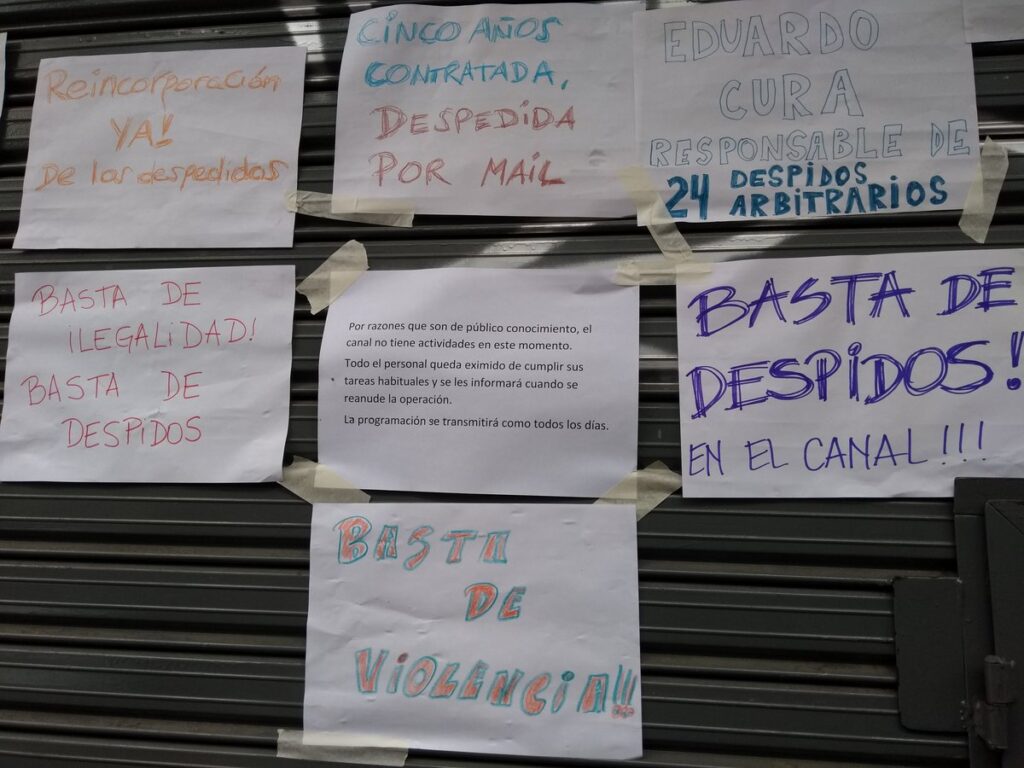 Reincorporación
YA!
De los despedidos
CINCO AÑOS
CONTRATADA,
DESPEDIDA
POR MAIL
EDUARDO
CURA
RESPONSABLE DE
24 DESPIDOS
ARBITRARIOS
BASTA DE
ILEGALIDAD!
BASTA DE
DESPIDOS
Por razones que son de público conocimiento, el
canal no tiene actividades en este momento.
Todo el personal queda eximido de cumplir sus
tareas habituales y se les informará cuando se
reanude la operación.
La programación se transmitirá como todos los días.
BASTA DE
DESPIDOS!
EN EL CANAL!!!
BASTA
DE
VIOLENCIA!!